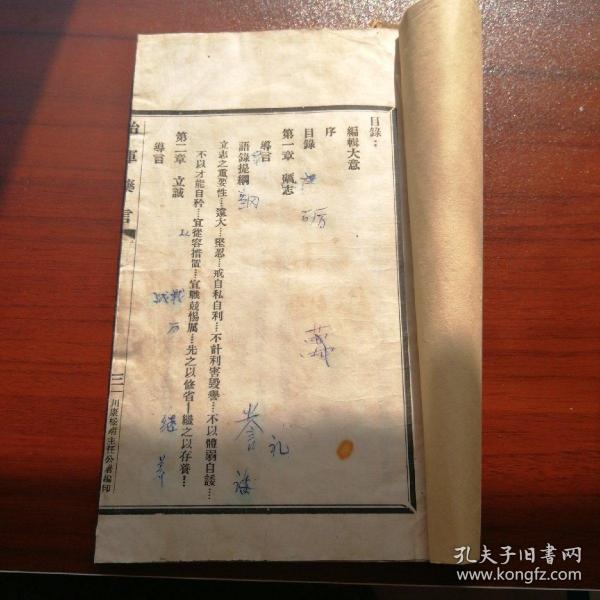 目錄：
編輯大意
序
目錄
第一章 礪志
導言
語錄提綱
立志之重要性…遠大…堅忍…戒自私自利…不計利害毀譽…不以體弱自諉…
不以才能自矜…宜從容措置…宜戰兢惕厲…先之以修省—繼之以存養…
第二章 立誠
導言
治軍藥言
三
川康綏靖主任公署編印
礪
綱
譽
礼
诿
以
战
厉
继
孔夫子旧书网
www.kongfz.com